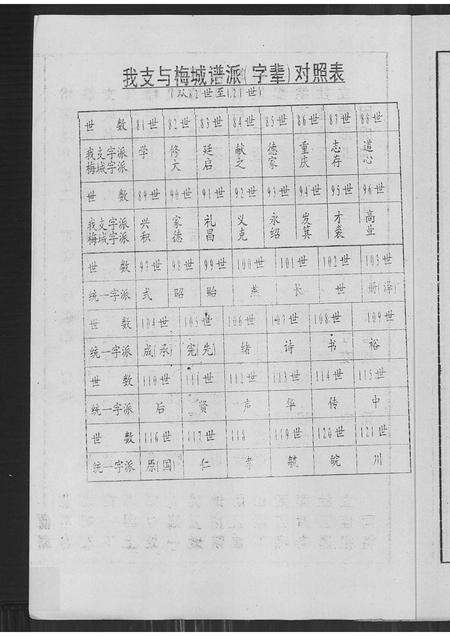 我支与梅城谱派(字辈)对照表
(从81世至121世)
世 数 81世 82世 83世 84世 85世 86世 87世 88世
我支字派 学 修 廷 献 德 重 志 道
梅城字派 天 启 之 家 庆 存 心
世 数 89世 90世 91世 92世 93世 94世 95世 96世
我支字派 兴 家 礼 义 永 发 才 高
梅城字派 积 德 昌 克 绍 箕 裘 业
世 数 97世 98世 99世 100世 101世 102世 103世
统一字派 式 昭 贻 燕 长 世
世 数 104世 105世 106世 107世 108世 109世
统一字派 成(承) 宪(先) 绪 诗 书 裕
世 数 110世 111世 112世 113世 114世 115世
统一字派 后 贤 声 华 传 中
世 数 116世 117世 118 119世 120世 121世
统一字派 原(国) 仁 孝 毓 皖 川